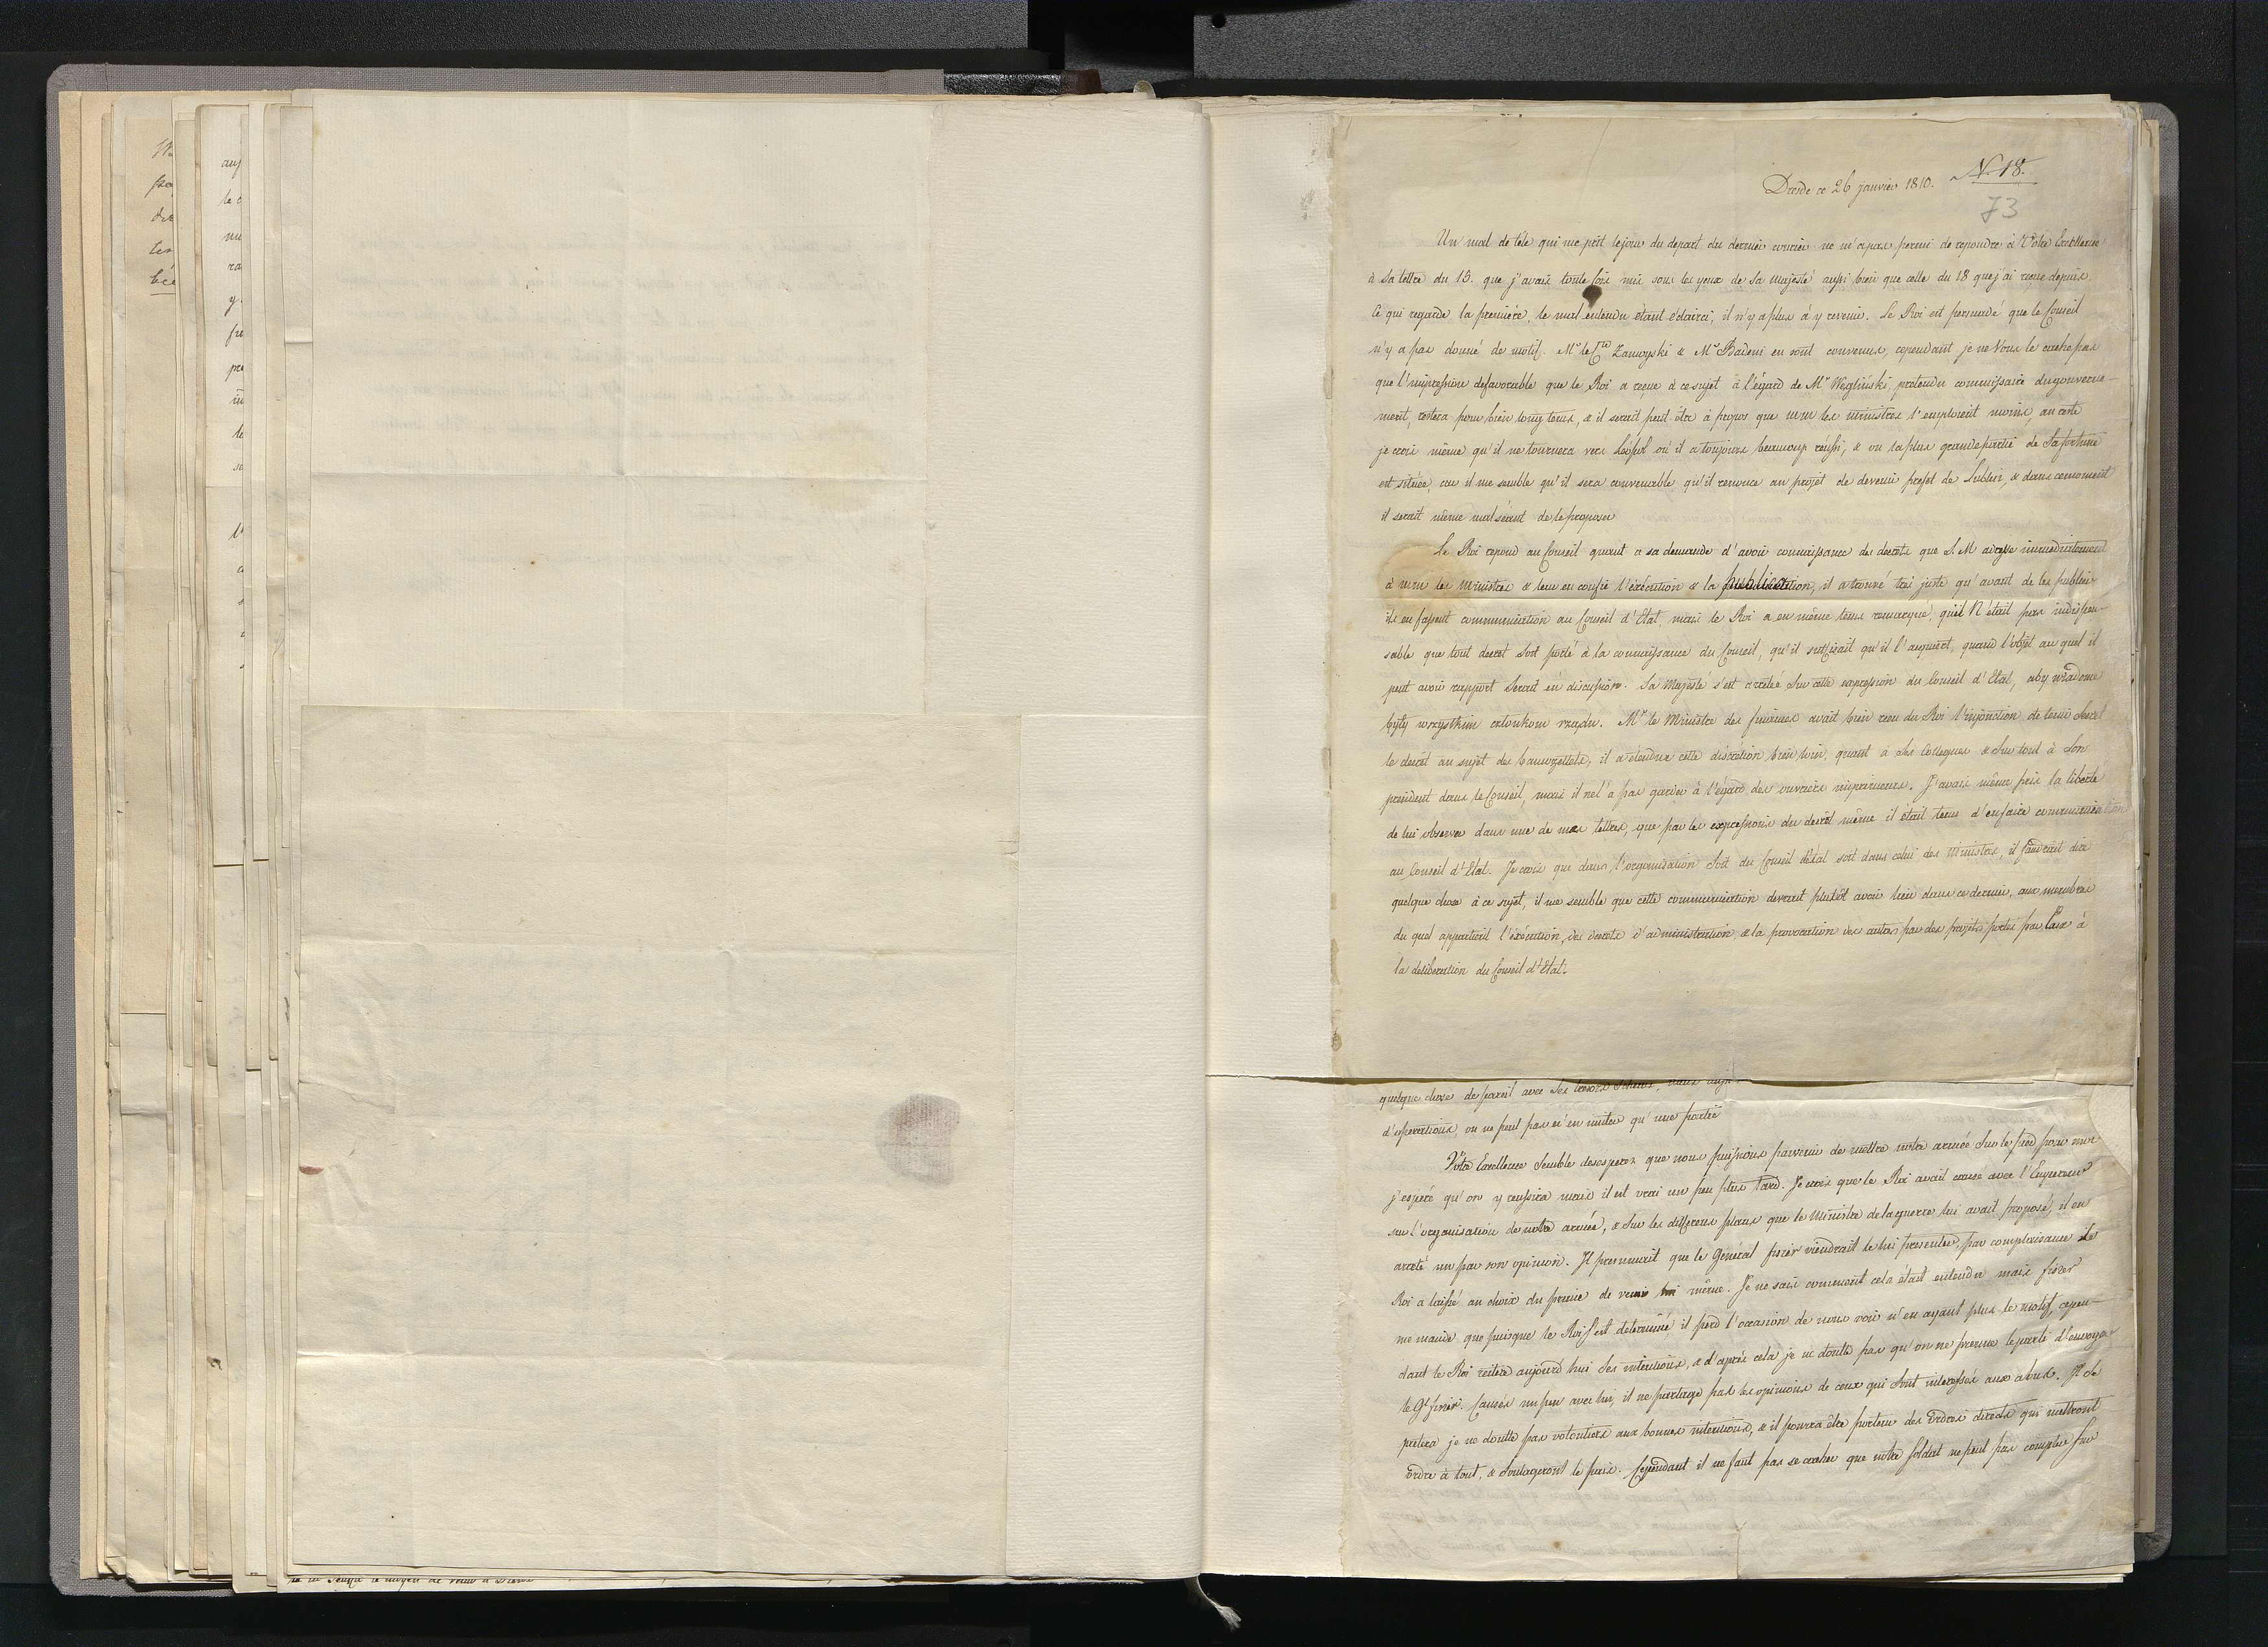 Dresde ce 26 janvier 1810. N. 18.
73
Un mal de tête qui me prit le jour du depart du dernier courier ne m'a pas permi de repondre à Votre Excellence
à sa lettre du 15. que j'avais toute fois mis sous les yeux de sa Majesté aussi bien que celle du 18 que j'ai reçue depuis.
Ce qui regarde la première, le mal entendu étant éclairci, il n'y a plus à y revenir. Le Roi est persuadé que le Conseil
n'y a pas donné de motif. Mr le Cte Zamoyski & Mr Badeni en sont convenus, cependant je ne Vous le cache pas
que l'impression defavorable que le Roi a reçue à ce sujet à l'égard de Mr Węgliński, pretendu commissaire du gouverne-
ment, restera pour bien long tems, & il serait peut être à propos que mm les ministres l'emploient moins, au reste
je crois même qu'il se tournera vers Léopol où il a toujours beaucoup réussi, & ou la plus grande partie de Sa fortune
est située, car il me semble qu'il sera convenable qu'il renonce au projet de devenir prefet de Lublin, & dans ce moment
il serait même malséant de le proposer
Le Roi repond au Conseil quant a sa demande d'avoir connaissance des decrets que S. M adresse immediatement
à mm les Ministres & leur en confie l'exécution & la publication, il a trouvé très juste qu'avant de les publier
ils en fassent communication au Conseil d'Etat, mais le Roi a en même tems remarqué, quil N'était pas indispen-
sable que tout decret soit porté à la connaissance du Conseil, qu'il suffisait qu'il l'acquiert, quand l'objet au quel il
peut avoir rapport Serait en discussion. Sa Majesté s'est arretée Sur cette expression du Conseil d'Etat, aby wiadome
były wszystkim członkom rządu. Mr le Ministre des finances avait bien reçu du Roi l'injonction de tenir Secret
le decret au sujet des bauwzettels, il a étendue cette discrétion bien loin, quant à Ses Collegues & Sur tout à Son
president dans le Conseil, mais il ne l'a pas gardée à l'égard des ouvriers imprimeurs. J'avais même pris la liberté
de lui observer dans une de mes lettres, que par les expressions du decret même il était tenu d'en faire communication
au Conseil d'Etat. Je crois que dans l'organisation Soit du Conseil d'état soit dans celui des Ministres, il faudrait dire
quelque chose à ce sujet, il me semble que cette communication devrait plutôt avoir lieu dans ce dernier, aux membres
du quel appartient l'exécution des decrets d'administration & la provocation des autres par des projets portés par Eux à
la deliberation du Conseil d'Etat.
quelque chose de pareil avec Ses
d'operations, on ne peut pas n'en imiter qu'une partie
Votre Excellence Semble desesperer que nous puissions parvenir de mettre notre armée Sur le pied
j'espère qu'on y reussira mais il est vrai un peu plus tard. Je crois que le Roi avait causé avec l'Empereur
sur l'organisation de notre armée, & Sur les differens plans que le Ministre de la guerre lui avait proposé, il en
arreté un par son opinion. Il presumait que le Général fiszer viendrait le lui presenter, par complaisance le
Roi a laissé au choix du prince de venir lui même. Je ne sais comment cela était entendu mais fiszer
me mande que puisque le Roi s'est determiné, il perd l'occasion de nous voir n'en ayant plus le motif, cepen-
dant le Roi reitere aujourd'hui Ses intentions, & d'après cela je ne doutte pas qu'on ne prenne le parti d'envoyer
le Gl fiszer. Causés un peu avec lui, il ne partage pas les opinions de ceux qui Sont interessés aux abus. Il Se
pretera je ne doutte pas volontiers aux bonnes intentions, & il pourra être porteur des Ordres directs qui mettront
Ordre à tout, & Soulageront le païs. Cependant il ne faut pas se cacher que notre Soldat ne peut pas compter Sur